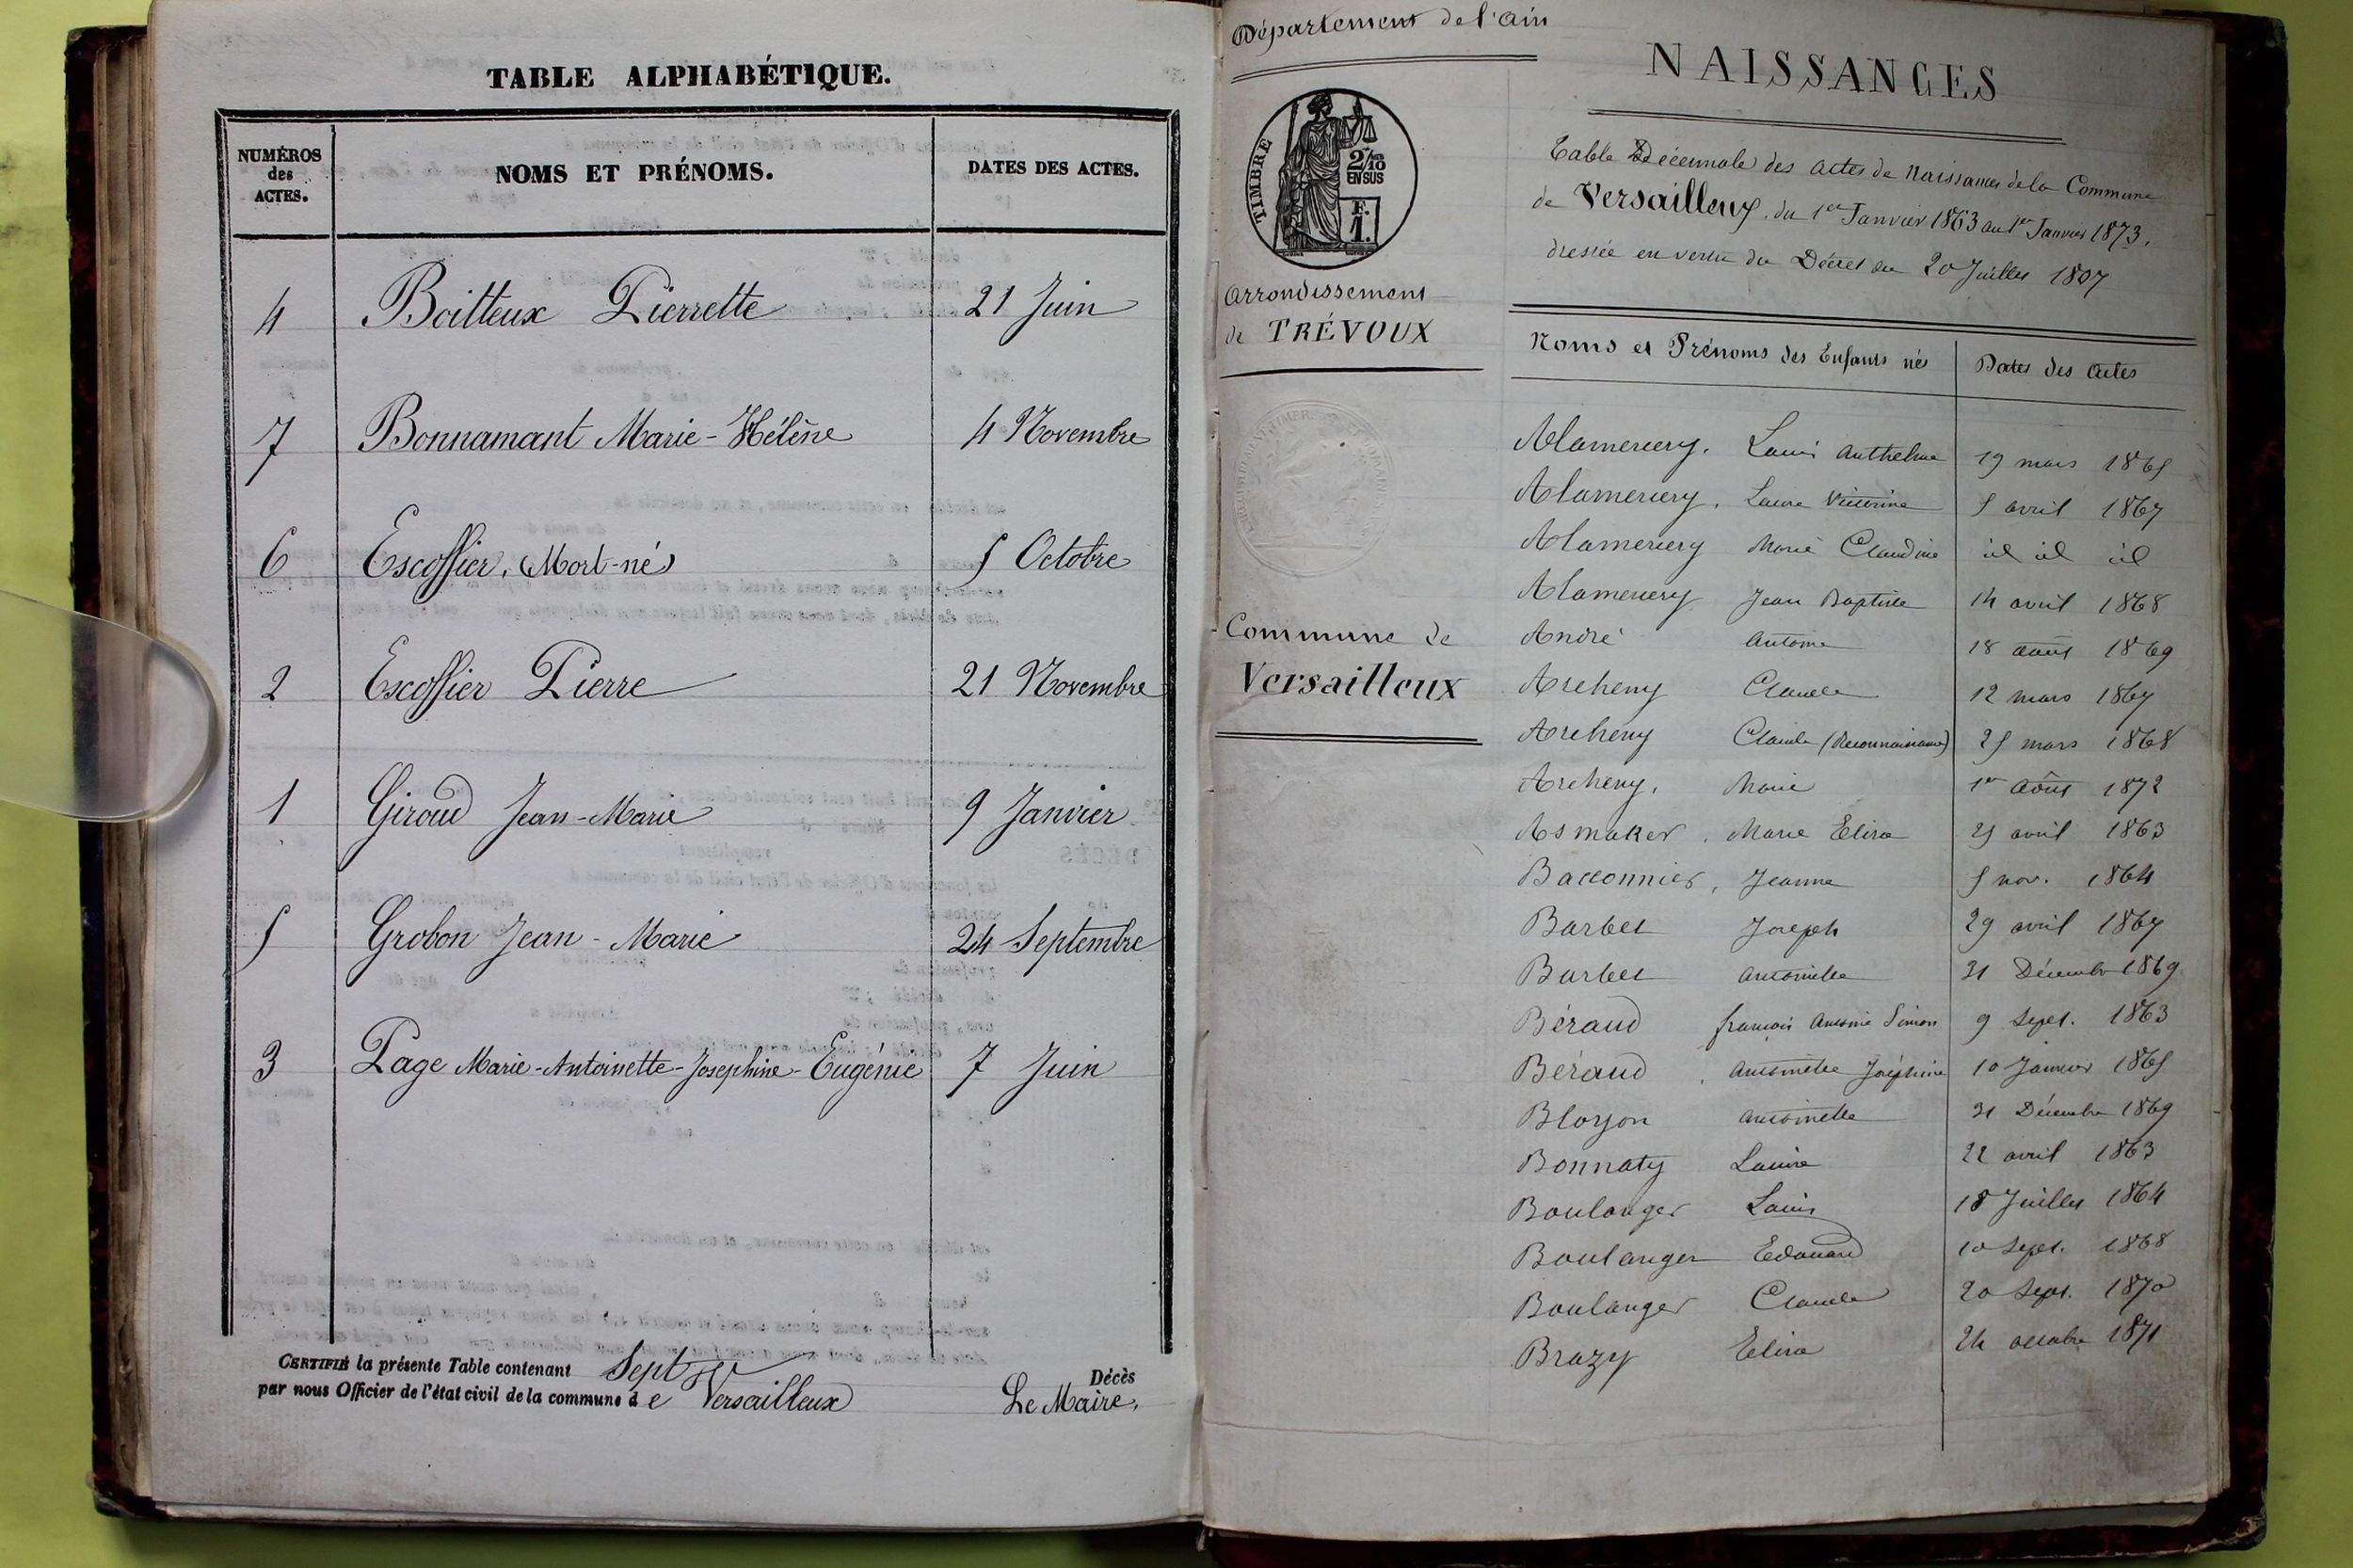 TABLE ALPHABÉTIQUE.
NUMÉROS
des
ACTES.
NOMS ET PRÉNOMS.
DATES DES ACTES.
4 Boitteux Pierrette 21 Juin
7 Bonnamant Marie-Hélène 4 Novembre
6 Escoffier, Mort-né 5 Octobre
2 Escoffier Pierre 21 Novembre
1 Giroud Jean-Marie 9 Janvier
5 Grobon Jean-Marie 24 Septembre
3 Page Marie-Antoinette-Josephine-Eugénie 7 Juin
CERTIFIÉ la présente Table contenant Sept Décès
par nous Officier de l'état civil de la commune de Versailleux
Le Maire,
Département de l'Ain
TIMBRE
2/10
EN SUS
F.
1.
Arrondissement
de TRÉVOUX
Commune de
Versailleux
NAISSANCES
Table Décennale des actes de Naissances de la Commune
de Versailleux, du 1er Janvier 1863 au 1er Janvier 1873,
dressée en vertu du Décret du 20 Juillet 1807
Noms et Prénoms des Enfants nés Dates des Actes
Alamercery, Louis Anthelme 19 mars 1865
Alamercery, Laure Victorine 5 avril 1867
Alamercery Marie Claudine id id id
Alamercery Jean Baptiste 14 avril 1868
André Antoine 18 août 1869
Archeny Claude 12 mars 1867
Archeny Claude (Reconnaissance) 25 mars 1868
Archeny, Marie 1er Août 1872
Asmaker, Marie Elisa 25 avril 1863
Bacconnier, Jeanne 5 nov. 1864
Barbet Joseph 29 avril 1867
Barbet Antoinette 31 Décembre 1869
Béraud françois Antoine Simon 9 Sept. 1863
Béraud, Antoinette Joséphine 10 Janvier 1865
Antoinette 31 Décembre 1869
Bonnaty 22 avril 1863
Boulanger Louis 18 Juillet 1864
Boulanger Edouard 10 Sept. 1868
Boulanger Claude 20 Sept. 1870
Brazy Elisa 24 octobre 1871